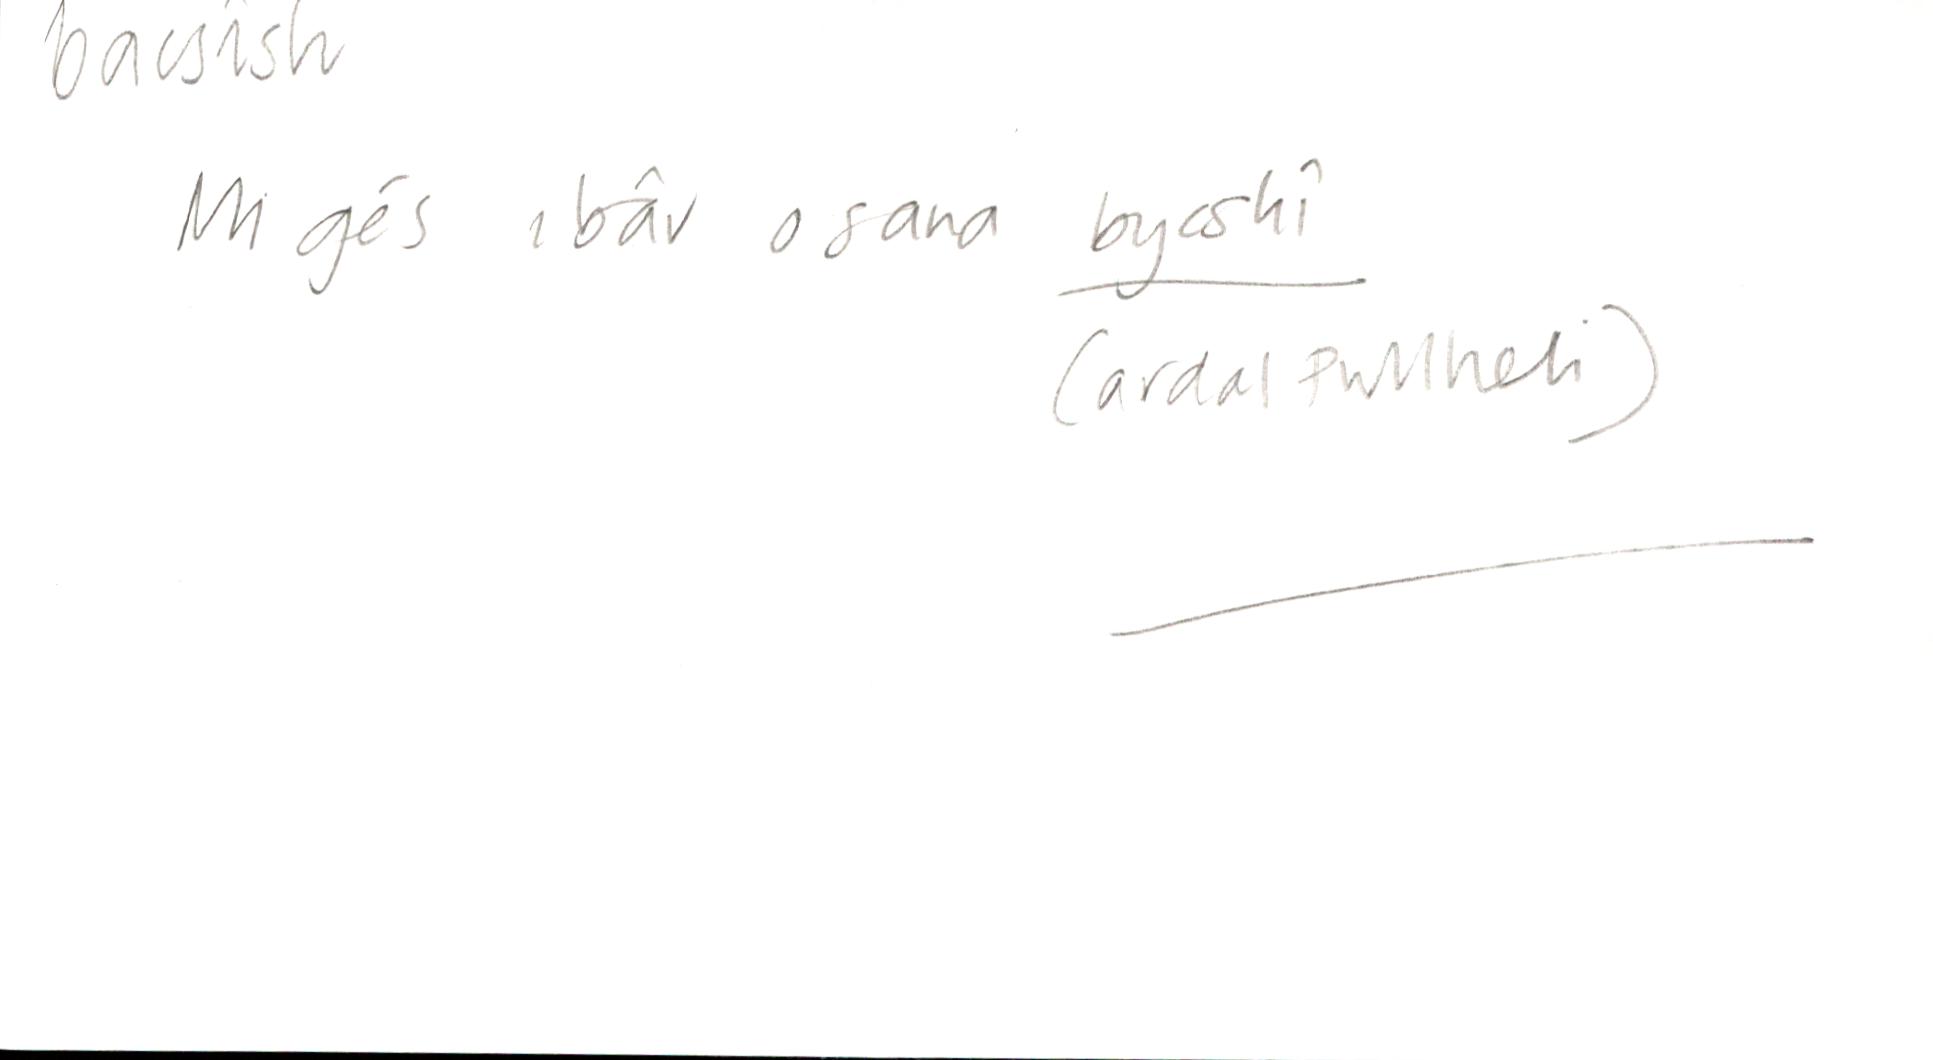 bacsîsh
Mi gés i bâr o sana bycshî
(ardal Pwllheli)